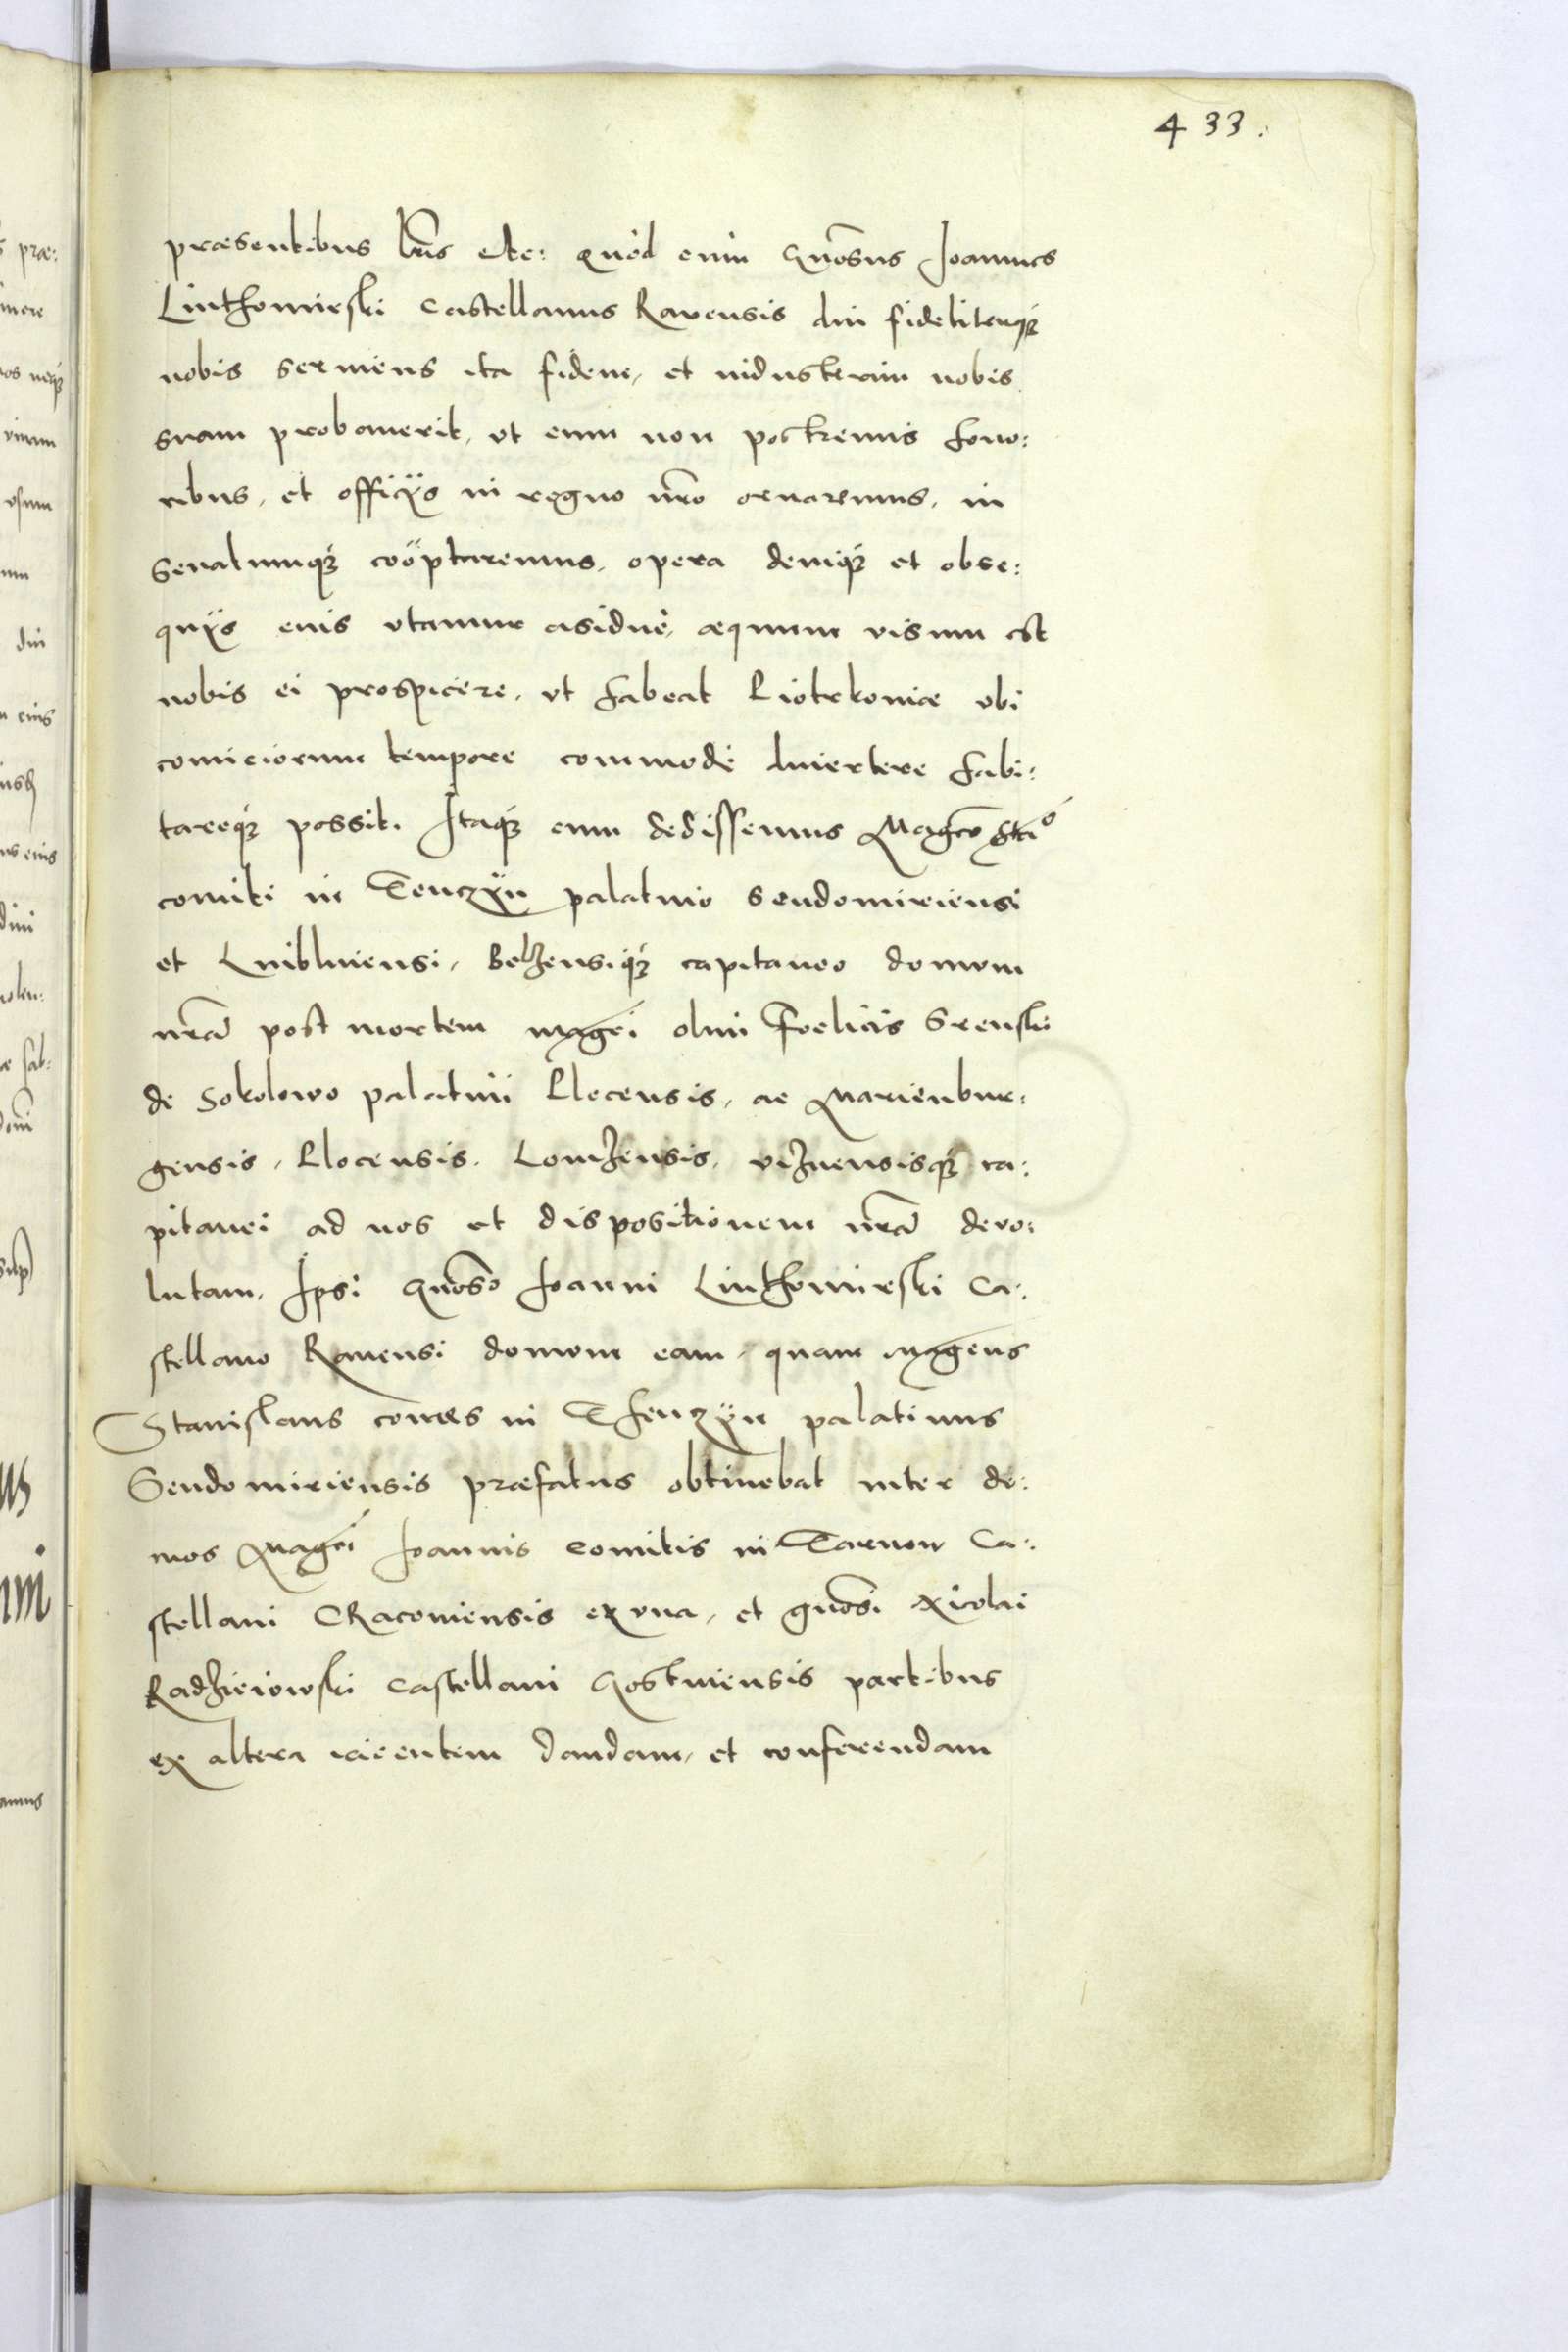 433.
præsentibus lrīs etc: quòd cum Gnōsus Joannes
Linthomirski Castellanus Ravensis diu fideliterq́
nobis seruiens ita fidem, et industriam nobis
suam probauerit, vt eum non postremis hono:
ribus, et officijs in regno nrō ornaremus, in
Senatumq́ coöptaremus, opera deniq́ et obse:
quijs eius vtamur asiduè, æquum visum est
nobis ei prospicere, vt habeat Piotrkoviæ vbi
comiciorum tempore commodè diuertere habi:
tareq́ possit. Itaq́ cum dedissemus Magcō Stāo
comiti in Tenczÿn palatino Sendomiriensi
et Lubliniensi, Belzensiq́ capitaneo domum
nrām post mortem magci olim Fœlicis Srenski
de Sokolowo palatini Plocensis, ac Marienbur:
gensis, Plocensis, Lomzensis, viznensisq́ ca:
pitanei ad nos et dispositionem nrām devo:
lutam, Ipsi Gnōso Joanni Linthomirski Ca:
stellano Rauensi domum eam, quam magcus
Stanislaus comes in Thenczÿn palatinus
Sendomiriensis præfatus obtinebat inter do:
mos Magci Joannis Comitis in Tarnow Ca:
stellani Cracouiensis ex vna, et gnōsi Nicolai
Radzieiowski Castellani Gostinensis partibus
ex altera iacentem dandam, et conferendam